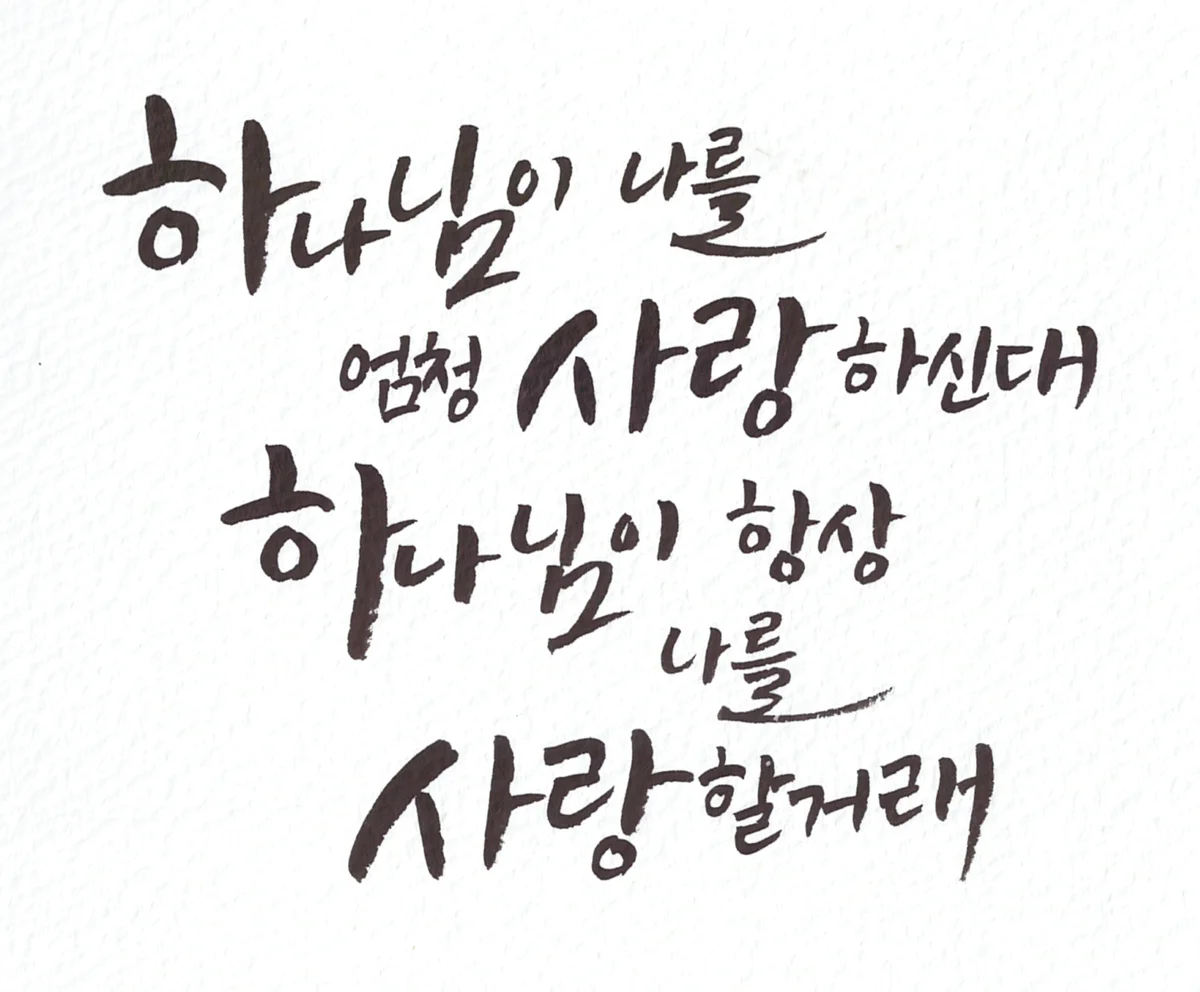 하나님이 나를
엄청 사랑하신대
하나님이 항상
나를
사랑할거래